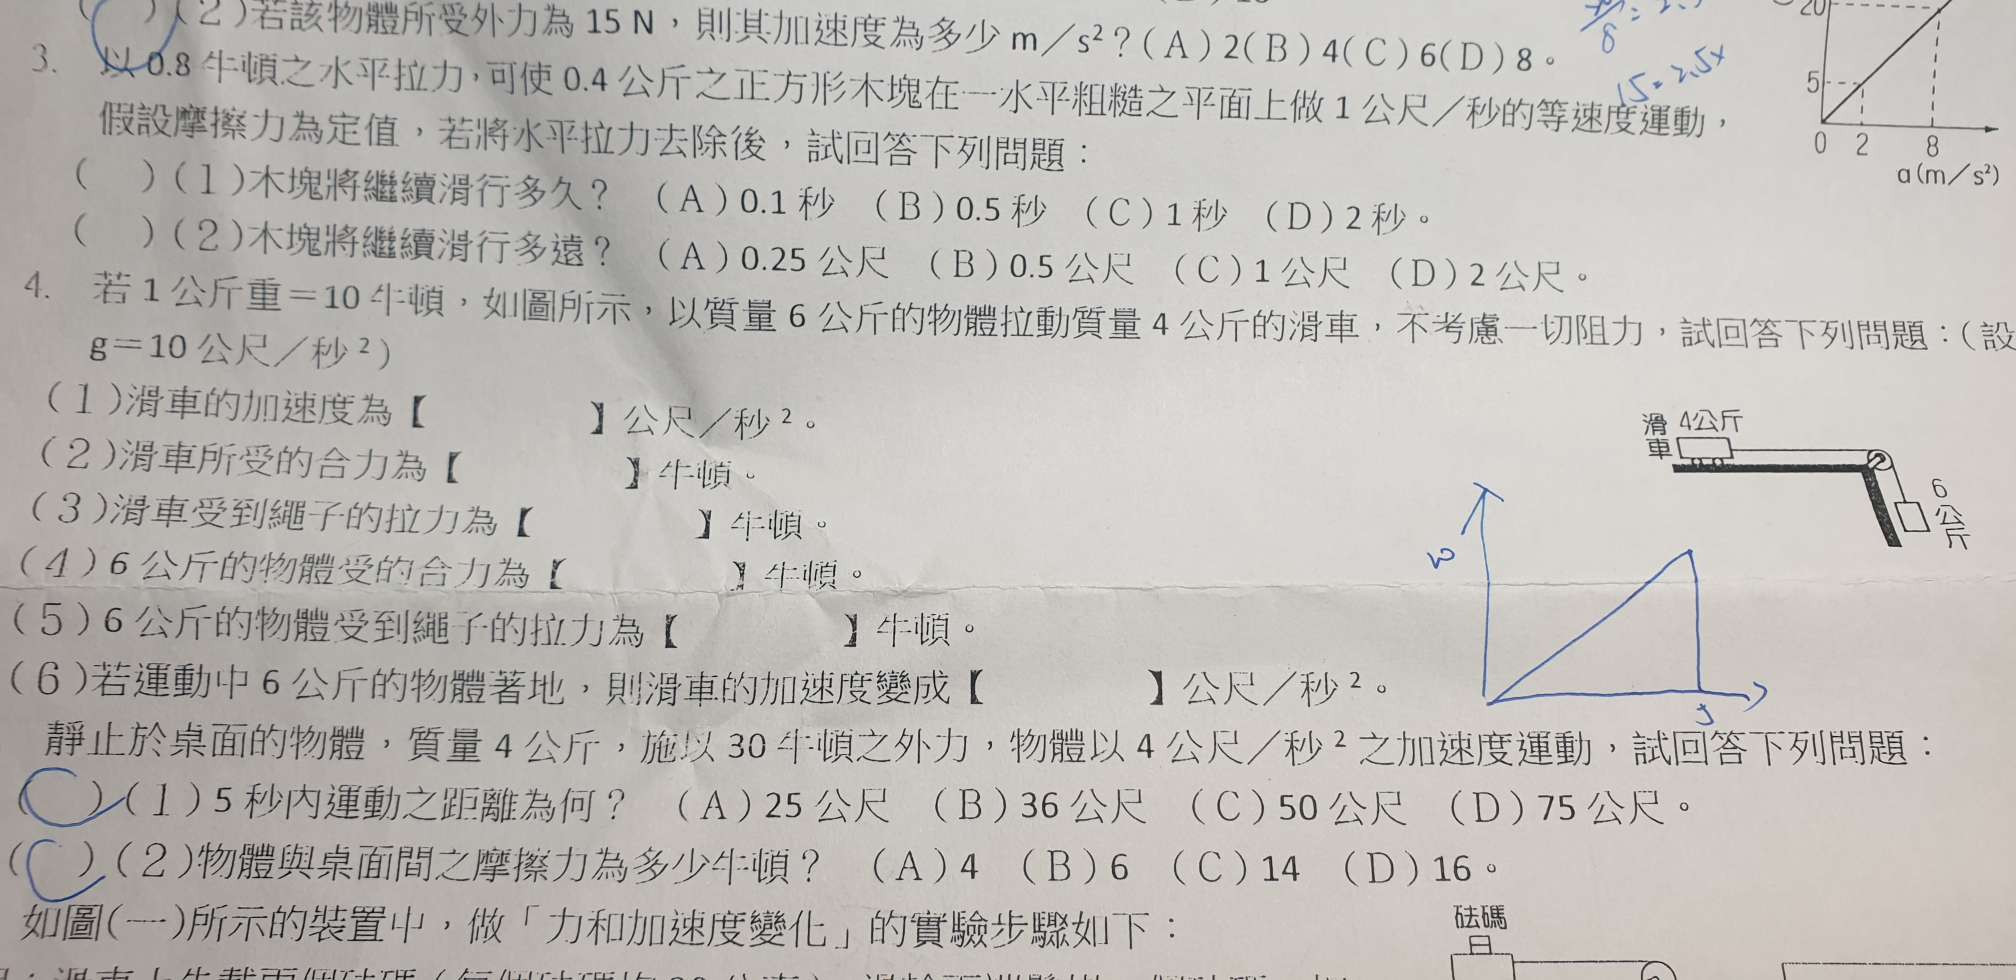 (2)若該物體所受外力為 15 N，則其加速度為多少 m／s²？(A) 2(B) 4(C) 6(D) 8。
3. 以 0.8 牛頓之水平拉力，可使 0.4 公斤之正方形木塊在一水平粗糙之平面上做 1 公尺／秒的等速度運動，
假設摩擦力為定值，若將水平拉力去除後，試回答下列問題：
( )(1)木塊將繼續滑行多久？ (A) 0.1 秒 (B) 0.5 秒 (C) 1 秒 (D) 2 秒。
( )(2)木塊將繼續滑行多遠？ (A) 0.25 公尺 (B) 0.5 公尺 (C) 1 公尺 (D) 2 公尺。
4. 若 1 公斤重＝10 牛頓，如圖所示，以質量 6 公斤的物體拉動質量 4 公斤的滑車，不考慮一切阻力，試回答下列問題：(設
g＝10 公尺／秒²)
(1)滑車的加速度為【 】公尺／秒²。
(2)滑車所受的合力為【 】牛頓。
(3)滑車受到繩子的拉力為【 】牛頓。
(4) 6 公斤的物體受的合力為【 】牛頓。
(5) 6 公斤的物體受到繩子的拉力為【 】牛頓。
(6)若運動中 6 公斤的物體著地，則滑車的加速度變成【 】公尺／秒²。
靜止於桌面的物體，質量 4 公斤，施以 30 牛頓之外力，物體以 4 公尺／秒² 之加速度運動，試回答下列問題：
( )(1) 5 秒內運動之距離為何？ (A) 25 公尺 (B) 36 公尺 (C) 50 公尺 (D) 75 公尺。
( )(2)物體與桌面間之摩擦力為多少牛頓？ (A) 4 (B) 6 (C) 14 (D) 16。
如圖(一)所示的裝置中，做「力和加速度變化」的實驗步驟如下：
20
5
0 2 8
a(m／s²)
8
15=2.5x
滑車 4公斤
6公斤
5
砝碼